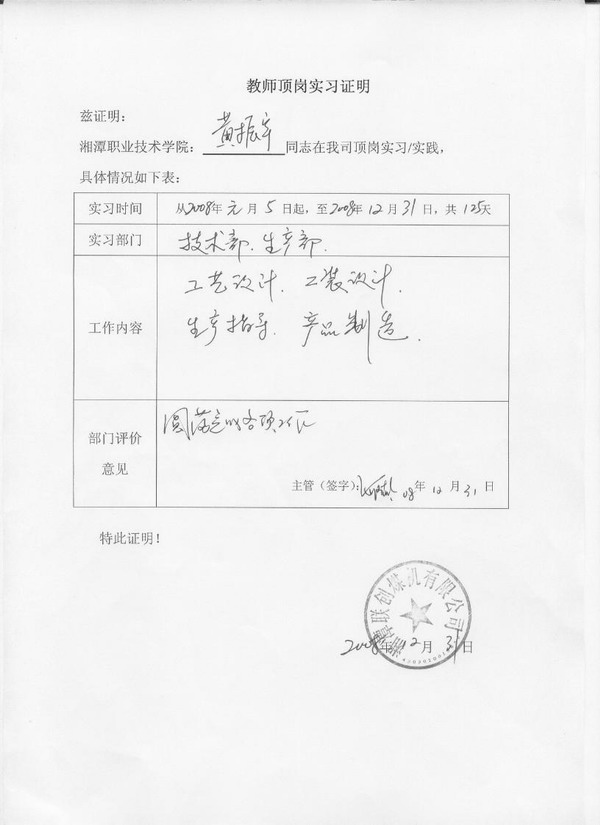 教师顶岗实习证明
兹证明：
湘潭职业技术学院：黄振宇同志在我司顶岗实习/实践，
具体情况如下表：
实习时间 从2008年元月5日起，至2008年12月31日，共125天
实习部门 技术部、生产部.
工艺设计、工装设计、
工作内容 生产指导、产品制造.
圆满完成各项工作
部门评价
意见
主管（签字）： 08年12月31日
特此证明！
湘潭联创煤机有限公司
2008年12月31日